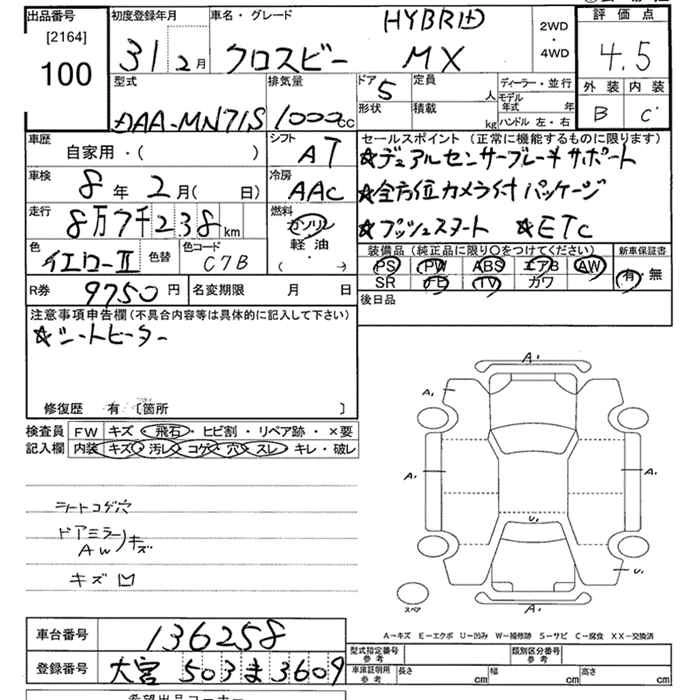 出品番号 初度登録年月 車名・グレード HYBRID 2WD ・ 4WD 評価点
[2164] 31 2月 クロスビー MX 4.5
100 型式 排気量 ドア 5 定員 人 ディーラー・並行 外装 内装
DAA-MN71S 1000cc 形状 積載 kg モデル年式 年 ハンドル 左・右 B C
車歴 自家用・( ) シフト AT セールスポイント(正常に機能するものに限ります)
☆デュアルセンサーブレーキサポート
車検 8年2月( 日) 冷房 AAC ☆全方位カメラ付パッケージ
走行 8万7千238km 燃料 ガソリン ☆プッシュスタート ☆ETC
色 イエローII 色替 色コード C7B 軽油 ( )
装備品(純正品に限り〇をつけてください) 新車保証書
PS PW ABS エアB AW 有・無
SR ナビ TV カワ
R券 9750円 名変期限 月 日 後日品
注意事項申告欄(不具合内容等は具体的に記入して下さい)
☆シートヒーター
修復歴 有 〔箇所 〕
検査員 FW キズ・飛石・ヒビ割・リペア跡・×要
記入欄 内装 キズ・汚レ・コゲ・穴・スレ・キレ・破レ
シートコゲ穴
ドアミラー
AW )キズ
キズ
A1
A1
A1 A1
U1
U1
A1
スペア
A-キズ E-エクボ U-凹み W-補修跡 S-サビ C-腐食 XX-交換済
車台番号 136258
型式指定番号 参考 類別区分番号 参考
登録番号 大宮 503 ま 3609
車庫証明用 参考 長さ cm 幅 cm 高さ cm
希望出品コーナー